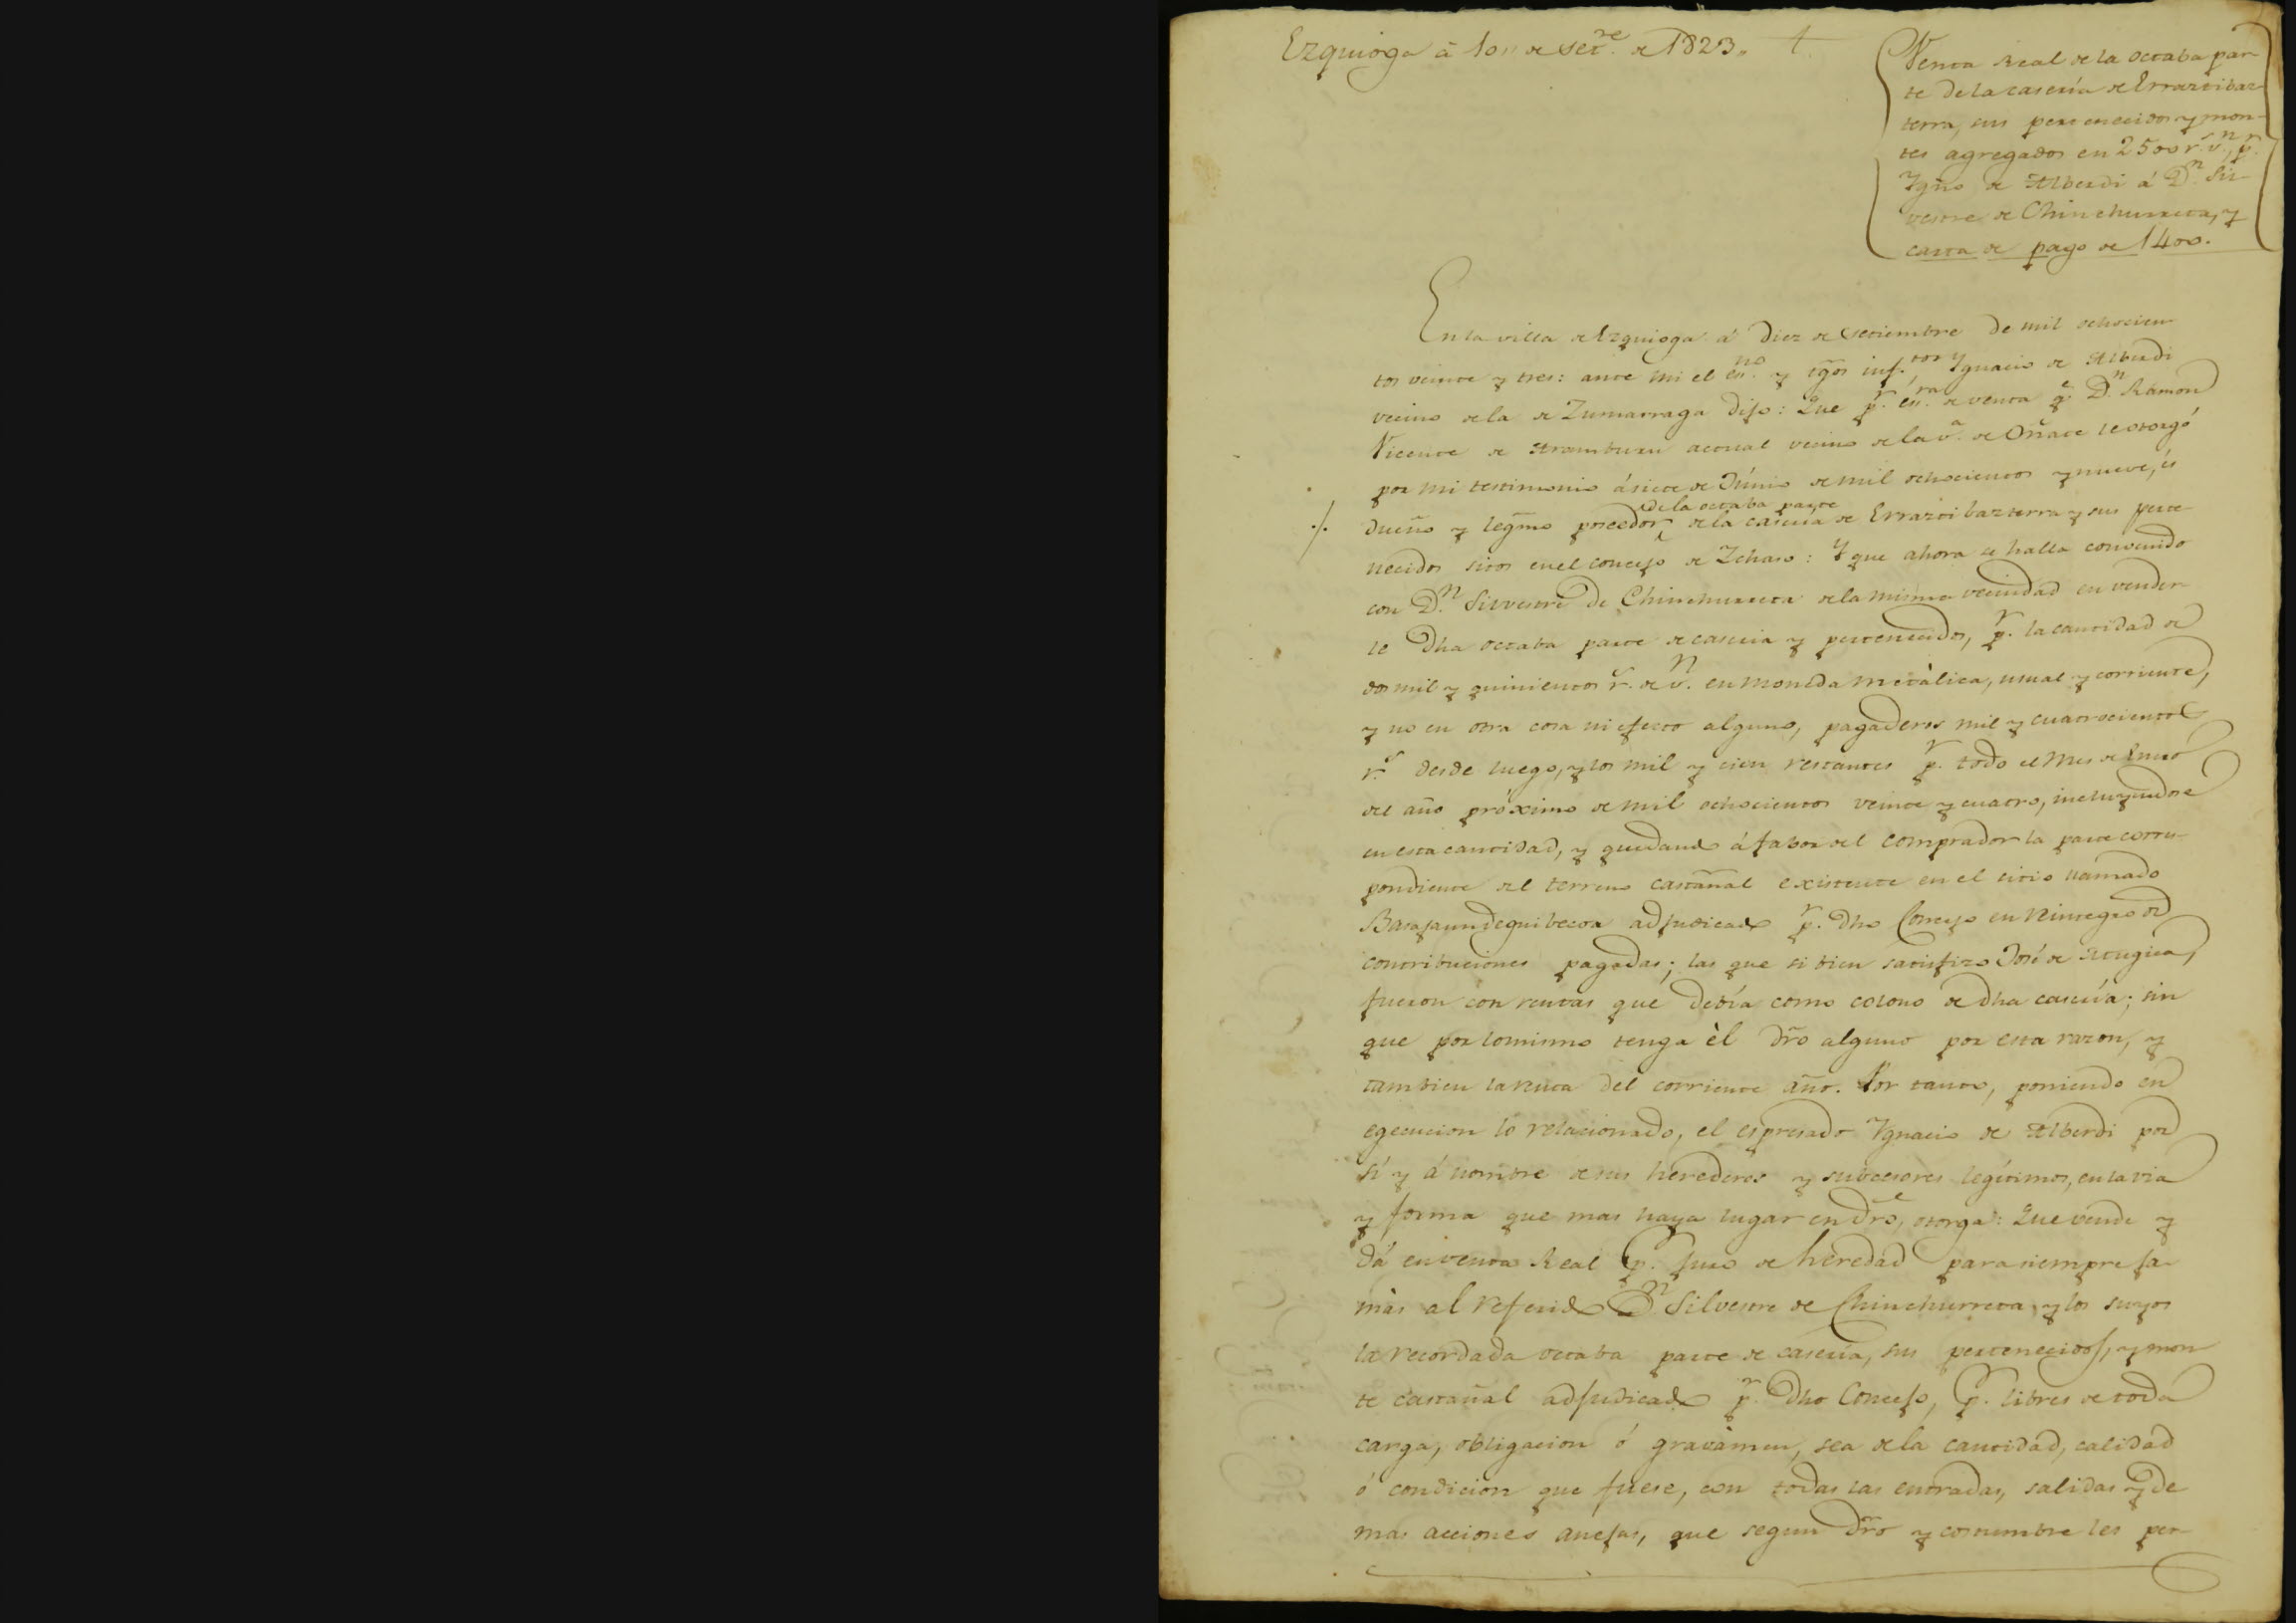 Ezquioga á 10,, de set.re de 1823.
Venta Real de la octaba par-
te de la casería de Errazti baz-
terra, sus pertenecidos y mon-
tes agregados en 2500 r.s v.n, p.r
Ygn̄o de Alberdi á D.n Sil-
vestre de Chinchurreta, y
carta de pago de 1400.
En la villa de Ezquioga á diez de Setiembre de mil ochocien
tos veinte y tres: ante mi el es.no y tg̃os inf.tos Ygnacio de Alberdi
vecino de la de Zumarraga dijo: Que p.r es.ra de venta q.e D.n Ramon
Vicente de Aramburu actual vecino de la v.a de Oñate le otorgó
por mi testimonio á siete de Júnio de mil ochocientos y nueve, és
dueño y legm̃o poseedor de la octaba parte de la casería de Errazti bazterra y sus perte-
necidos sitos en el concejo de Ichaso: Y que ahora se halla convenido
con D.n Silvestre de Chinchurreta de la misma vecindad en vender-
le dha octaba parte de casería y pertenecidos, p.r la cantidad de
dos mil y quinientos r.s de v.n en moneda metàlica, usual y corriente,
y no en otra cosa ni efecto alguno, pagaderos mil y cuatrocientos
r.s desde luego, y los mil y cien restantes p.r todo el mes de Enero
del año próximo de mil ochocientos veinte y cuatro, incluyendose
en esta cantidad, y quedando á fabor del comprador la parte corres-
pondiente del terreno castañal existente en el sitio llamado
Basajaundeguibecoa adjudicado p.r dho Concejo en reintegro de
contribuciones pagadas; las que si bien satisfizo José de
fueron con rentas que debía como colono de dha casería; sin
que por lo mismo tenga èl dr̃o alguno por esta razon, y
tambien la renta del corriente año. Por tanto, poniendo en
egecucion lo relacionado, el espresado Ygnacio de Alberdi por
sí y á nombre de sus herederos y subcesores legítimos, en la via
y forma que mas haya lugar en dr̃o, otorga: Que vende y
dá en venta Real p.r juro de heredad para siempre ja-
màs al referido D.n Silvestre de Chinchurreta, y los suyos
la recordada octaba parte de casería, sus pertenecidos, y mon
te castañal adjudicado p.r dho Concejo, p.r libres de toda
carga, obligacion ó gravàmen, sea de la cantidad, calidad
ó condicion que fuese, con todas las entradas, salidas y de
mas acciones anejas, que segun dr̃o y costumbre les per-